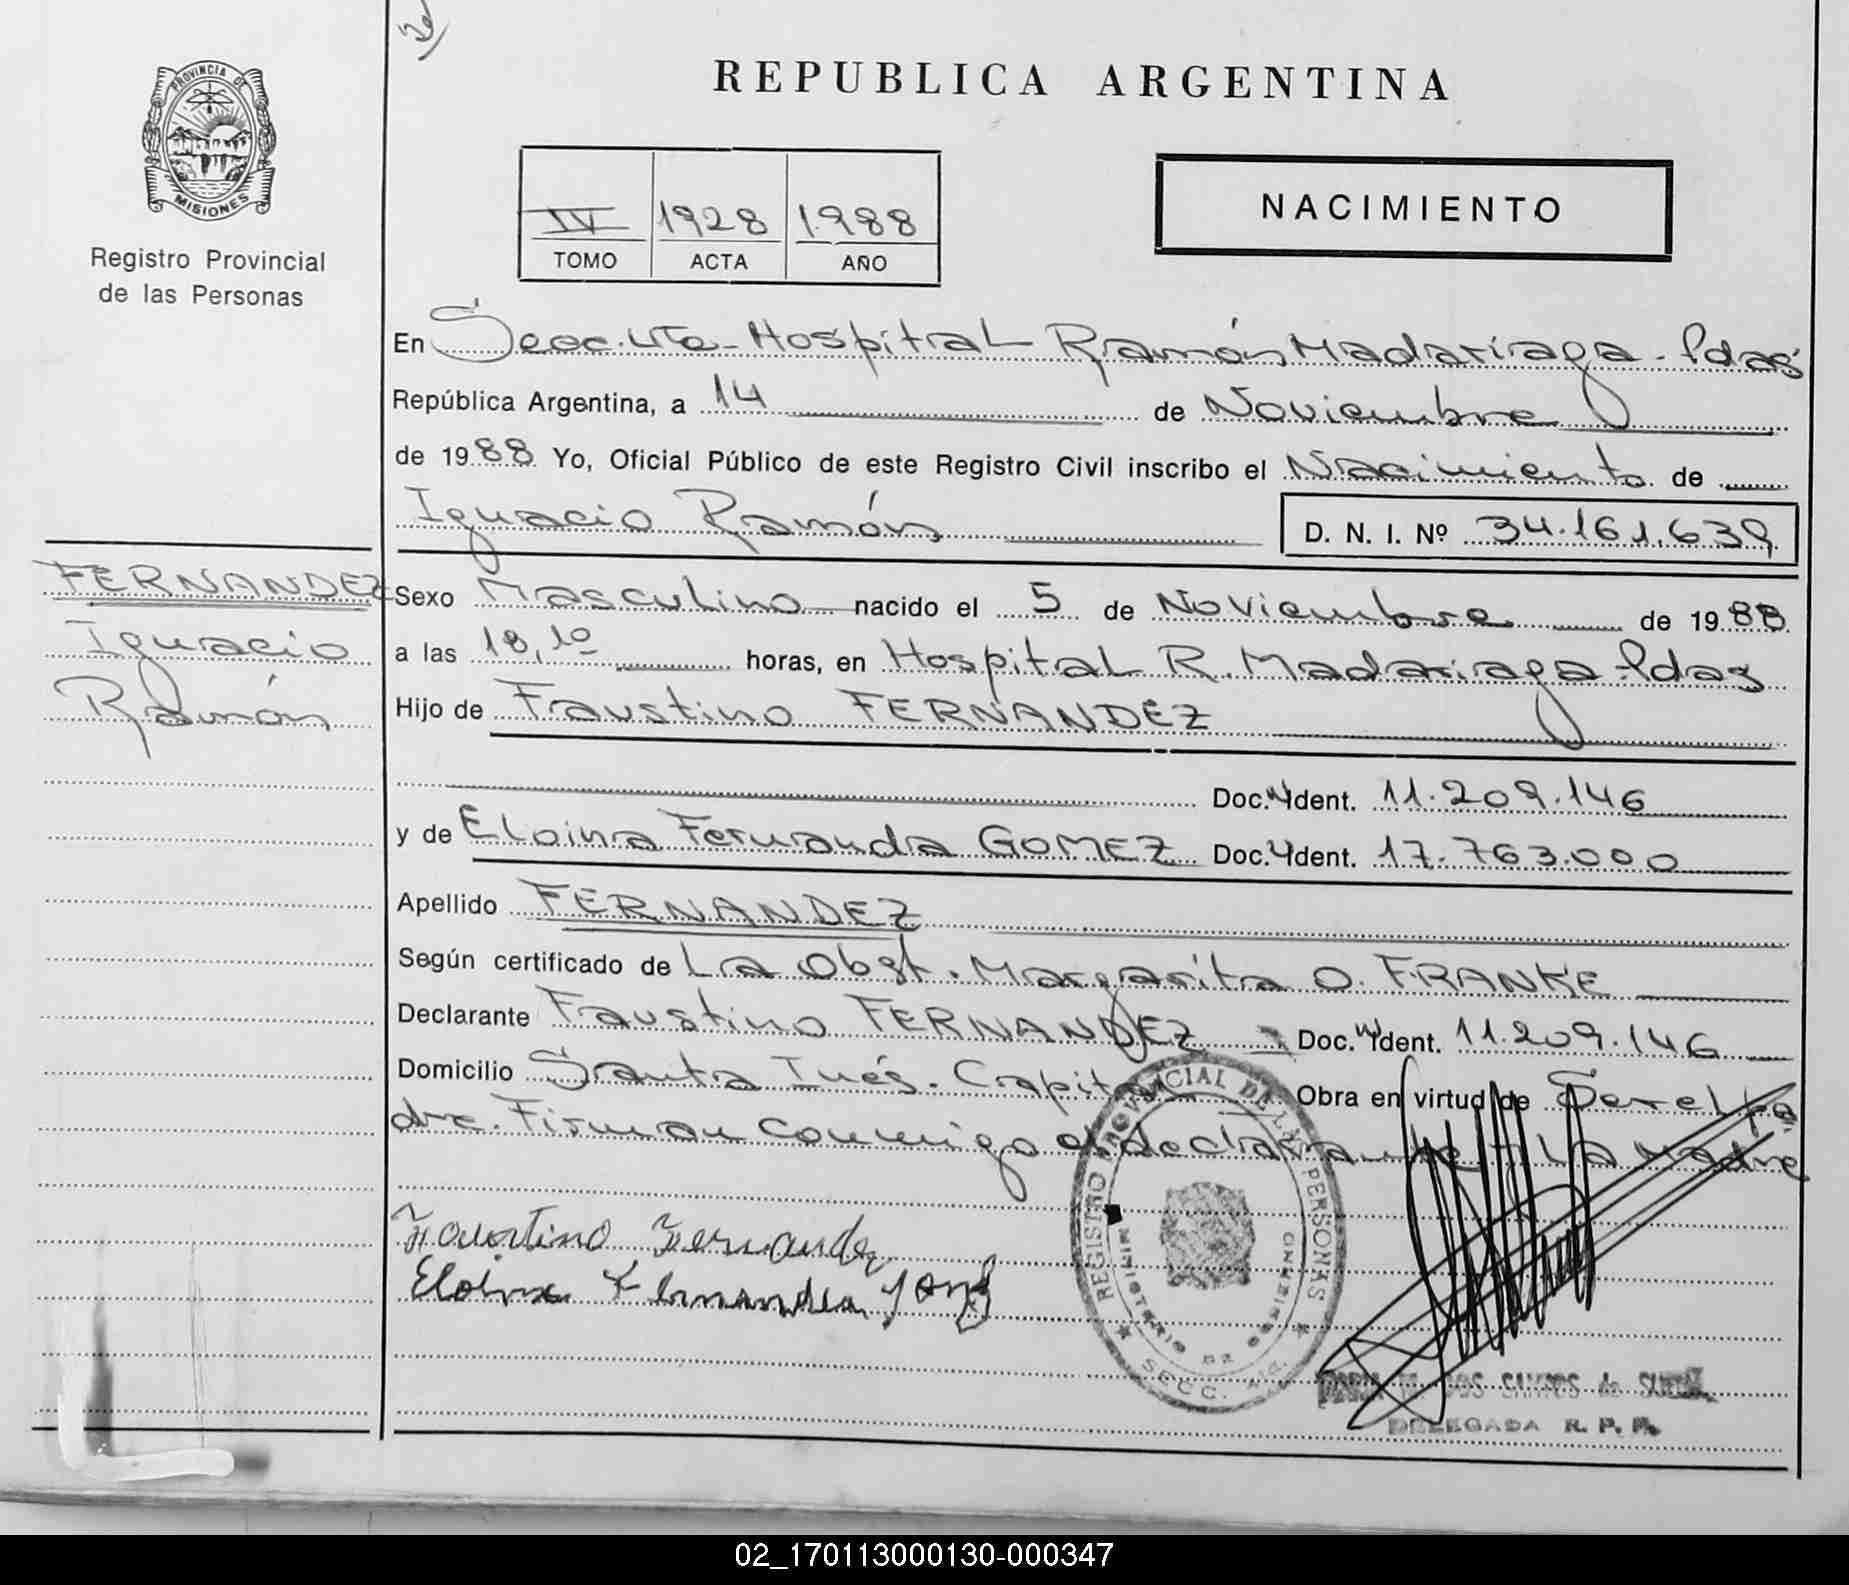 PROVINCIA DE
MISIONES
Registro Provincial
de las Personas
REPUBLICA ARGENTINA
IV 1928 1988
TOMO ACTA AÑO
NACIMIENTO
En Secc. Hospital Ramón Madariaga - Pdas
República Argentina, a 14 de Noviembre
de 1988 Yo, Oficial Público de este Registro Civil inscribo el Nacimiento de
Ignacio Ramón D. N. I. Nº 34.161.639
FERNANDEZ
Ignacio
Ramón
Sexo Masculino nacido el 5 de Noviembre de 1988
a las 18,10 horas, en Hospital R. Madariaga - Pdas
Hijo de Faustino FERNANDEZ
Doc. Ident. 11.209.146
y de Eloina Fernanda GOMEZ Doc. Ident. 17.763.000
Apellido FERNANDEZ
Según certificado de La Obst. Margarita O. FRANKE
Declarante Faustino FERNANDEZ Doc. Ident. 11.209.146
Domicilio Santa Inés. Capital Obra en virtud de Ser el Pa
dre. Firman conmigo el declarante y La Madre
Faustino Fernandez
Eloina Fernanda
REGISTRO PROVINCIAL DE LAS PERSONAS
MINISTERIO DE GOBIERNO
SECC.
DOS SANTOS de
DELEGADA R. P. P.
02_170113000130-000347